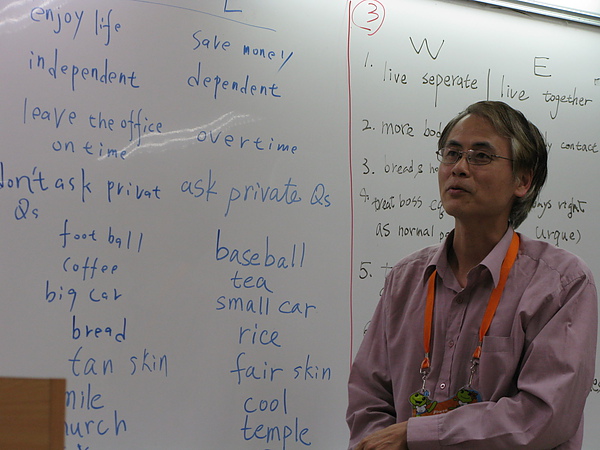 L
enjoy life save money
independent dependent
leave the office overtime
on time
don't ask privat ask private Qs
Qs
foot ball baseball
coffee tea
big car small car
bread rice
tan skin fair skin
mile cool
urch temple
3
W E
1. live seperate live together
2. more bod y contact
3. bread,
4. treat boss ays right
as normal urque)
5.